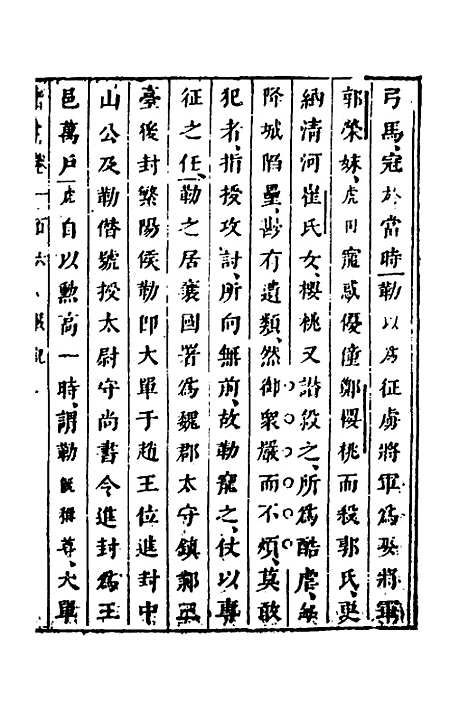 弓馬冠於當時勒以為征虜將軍為娶將軍
郭榮妹虎𢙣寵惑優僮鄭櫻桃而殺郭氏更
納清河崔氏女櫻桃又譖殺之所為酷虐
降城陷壘尠有遺類然御衆嚴而不煩莫敢
犯者指授攻討所向無前故勒寵之仗以專
征之任勒之居襄國署為魏郡太守鎮鄴三
臺後封繁陽侯勒即大單于趙王位進封中
山公及勒僭號授太尉守尚書令進封為王
邑萬戸虎自以勲高一時謂勒即尊大單
卷一百六